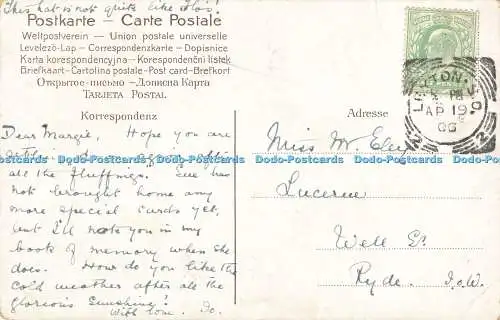 This hat is not quite like Flo's!
Postkarte – Carte Postale
Weltpostverein – Union postale universelle
Levelező-Lap – Correspondenzkarte – Dopisnice
Karta korespondencyjna – Korespondenční lístek
Briefkaart – Cartolina postale – Post card – Brefkort
Открытое письмо – Дописна Карта
Tarjeta Postal
Korrespondenz
Adresse
AP 19
06
Dear Margie, Hope you are
all the fluffings. She has
not brought home any
more special cards yet,
but I'll note you in my
book of memory when she
does. How do you like the
cold weather after all the
glorious sunshine!
With love. Jo.
Miss M.
Lucerne
Well St.
Ryde. I.o.W.
www.hipp